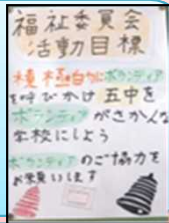 福祉委員会
活動目標
積極的にボランティア
を呼びかけ 五中を
ボランティアがさかんな
学校にしよう
ボランティアのご協力を
お願いします